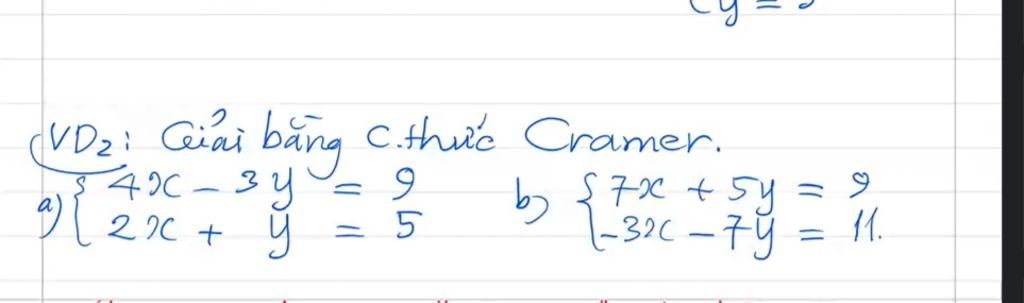 VD2: Giải bằng C.thức Cramer.
a) { 4x - 3y = 9
2x + y = 5
b) { 7x + 5y = 9
-3x - 7y = 11.